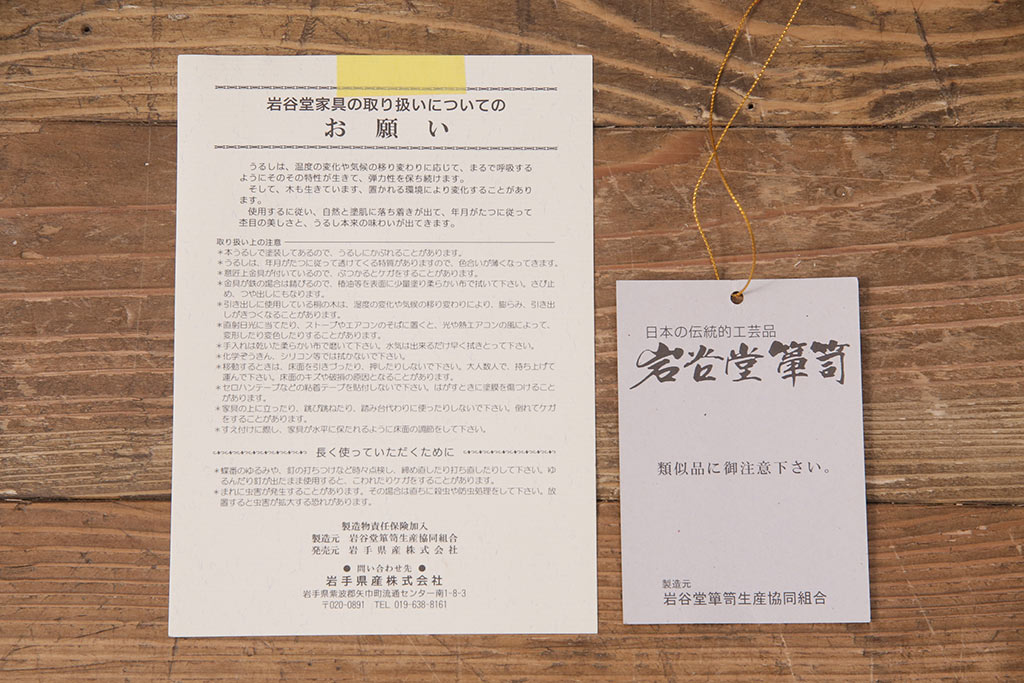 岩谷堂家具の取り扱いについての
お願い
うるしは、温度の変化や気候の移り変わりに応じて、まるで呼吸する
ようにそのその特性が生きて、弾力性を保ち続けます。
そして、木も生きています、置かれる環境により変化することがあり
ます。
使用するに従い、自然と塗肌に落ち着きが出て、年月がたつに従って
杢目の美しさと、うるし本来の味わいが出てきます。
取り扱い上の注意
＊本うるしで塗装してあるので、うるしにかぶれることがあります。
＊うるしは、年月がたつに従って透けてくる特質がありますので、色合いが薄くなってきます。
＊意匠上金具が付いているので、ぶつかるとケガをすることがあります。
＊金具が鉄の場合は錆びるので、椿油等を表面に少量塗り柔らかい布で拭いて下さい。さび止
め、つや出しにもなります。
＊引き出しに使用している桐の木は、湿度の変化や気候の移り変わりにより、膨らみ、引き出
しがきつくなることがあります。
＊直射日光に当てたり、ストーブやエアコンのそばに置くと、光や熱エアコンの風によって、
変形したり変色したりすることがあります。
＊手入れは乾いた柔らかい布で磨いて下さい。水気は出来るだけ早く拭きとって下さい。
＊化学ぞうきん、シリコン等では拭かないで下さい。
＊移動するときは、床面を引きづったり、押したりしないで下さい。大人数人で、持ち上げて
運んで下さい。床面のキズや破損の原因となることがあります。
＊セロハンテープなどの粘着テープを貼付しないで下さい。はがすときに塗膜を傷つけること
があります。
＊家具の上に立ったり、跳び跳ねたり、踏み台代わりに使ったりしないで下さい。倒れてケガ
をすることがあります。
＊すえ付けに際し、家具が水平に保たれるように床面の調節をして下さい。
長く使っていただくために
＊蝶番のゆるみや、釘の打ちつけなど時々点検し、締め直したり打ち直したりして下さい。ゆ
るんだり釘が出たまま使用すると、こわれたりケガをすることがあります。
＊まれに虫害が発生することがあります。その場合は直ちに殺虫や防虫処理をして下さい。放
置すると虫害が拡大する恐れがあります。
製造物責任保険加入
製造元 岩谷堂箪笥生産協同組合
発売元 岩手県産株式会社
● 問い合わせ先 ●
岩手県産株式会社
岩手県紫波郡矢巾町流通センター南1-8-3
〒020-0891 TEL 019-638-8161
日本の伝統的工芸品
岩谷堂箪笥
類似品に御注意下さい。
製造元
岩谷堂箪笥生産協同組合